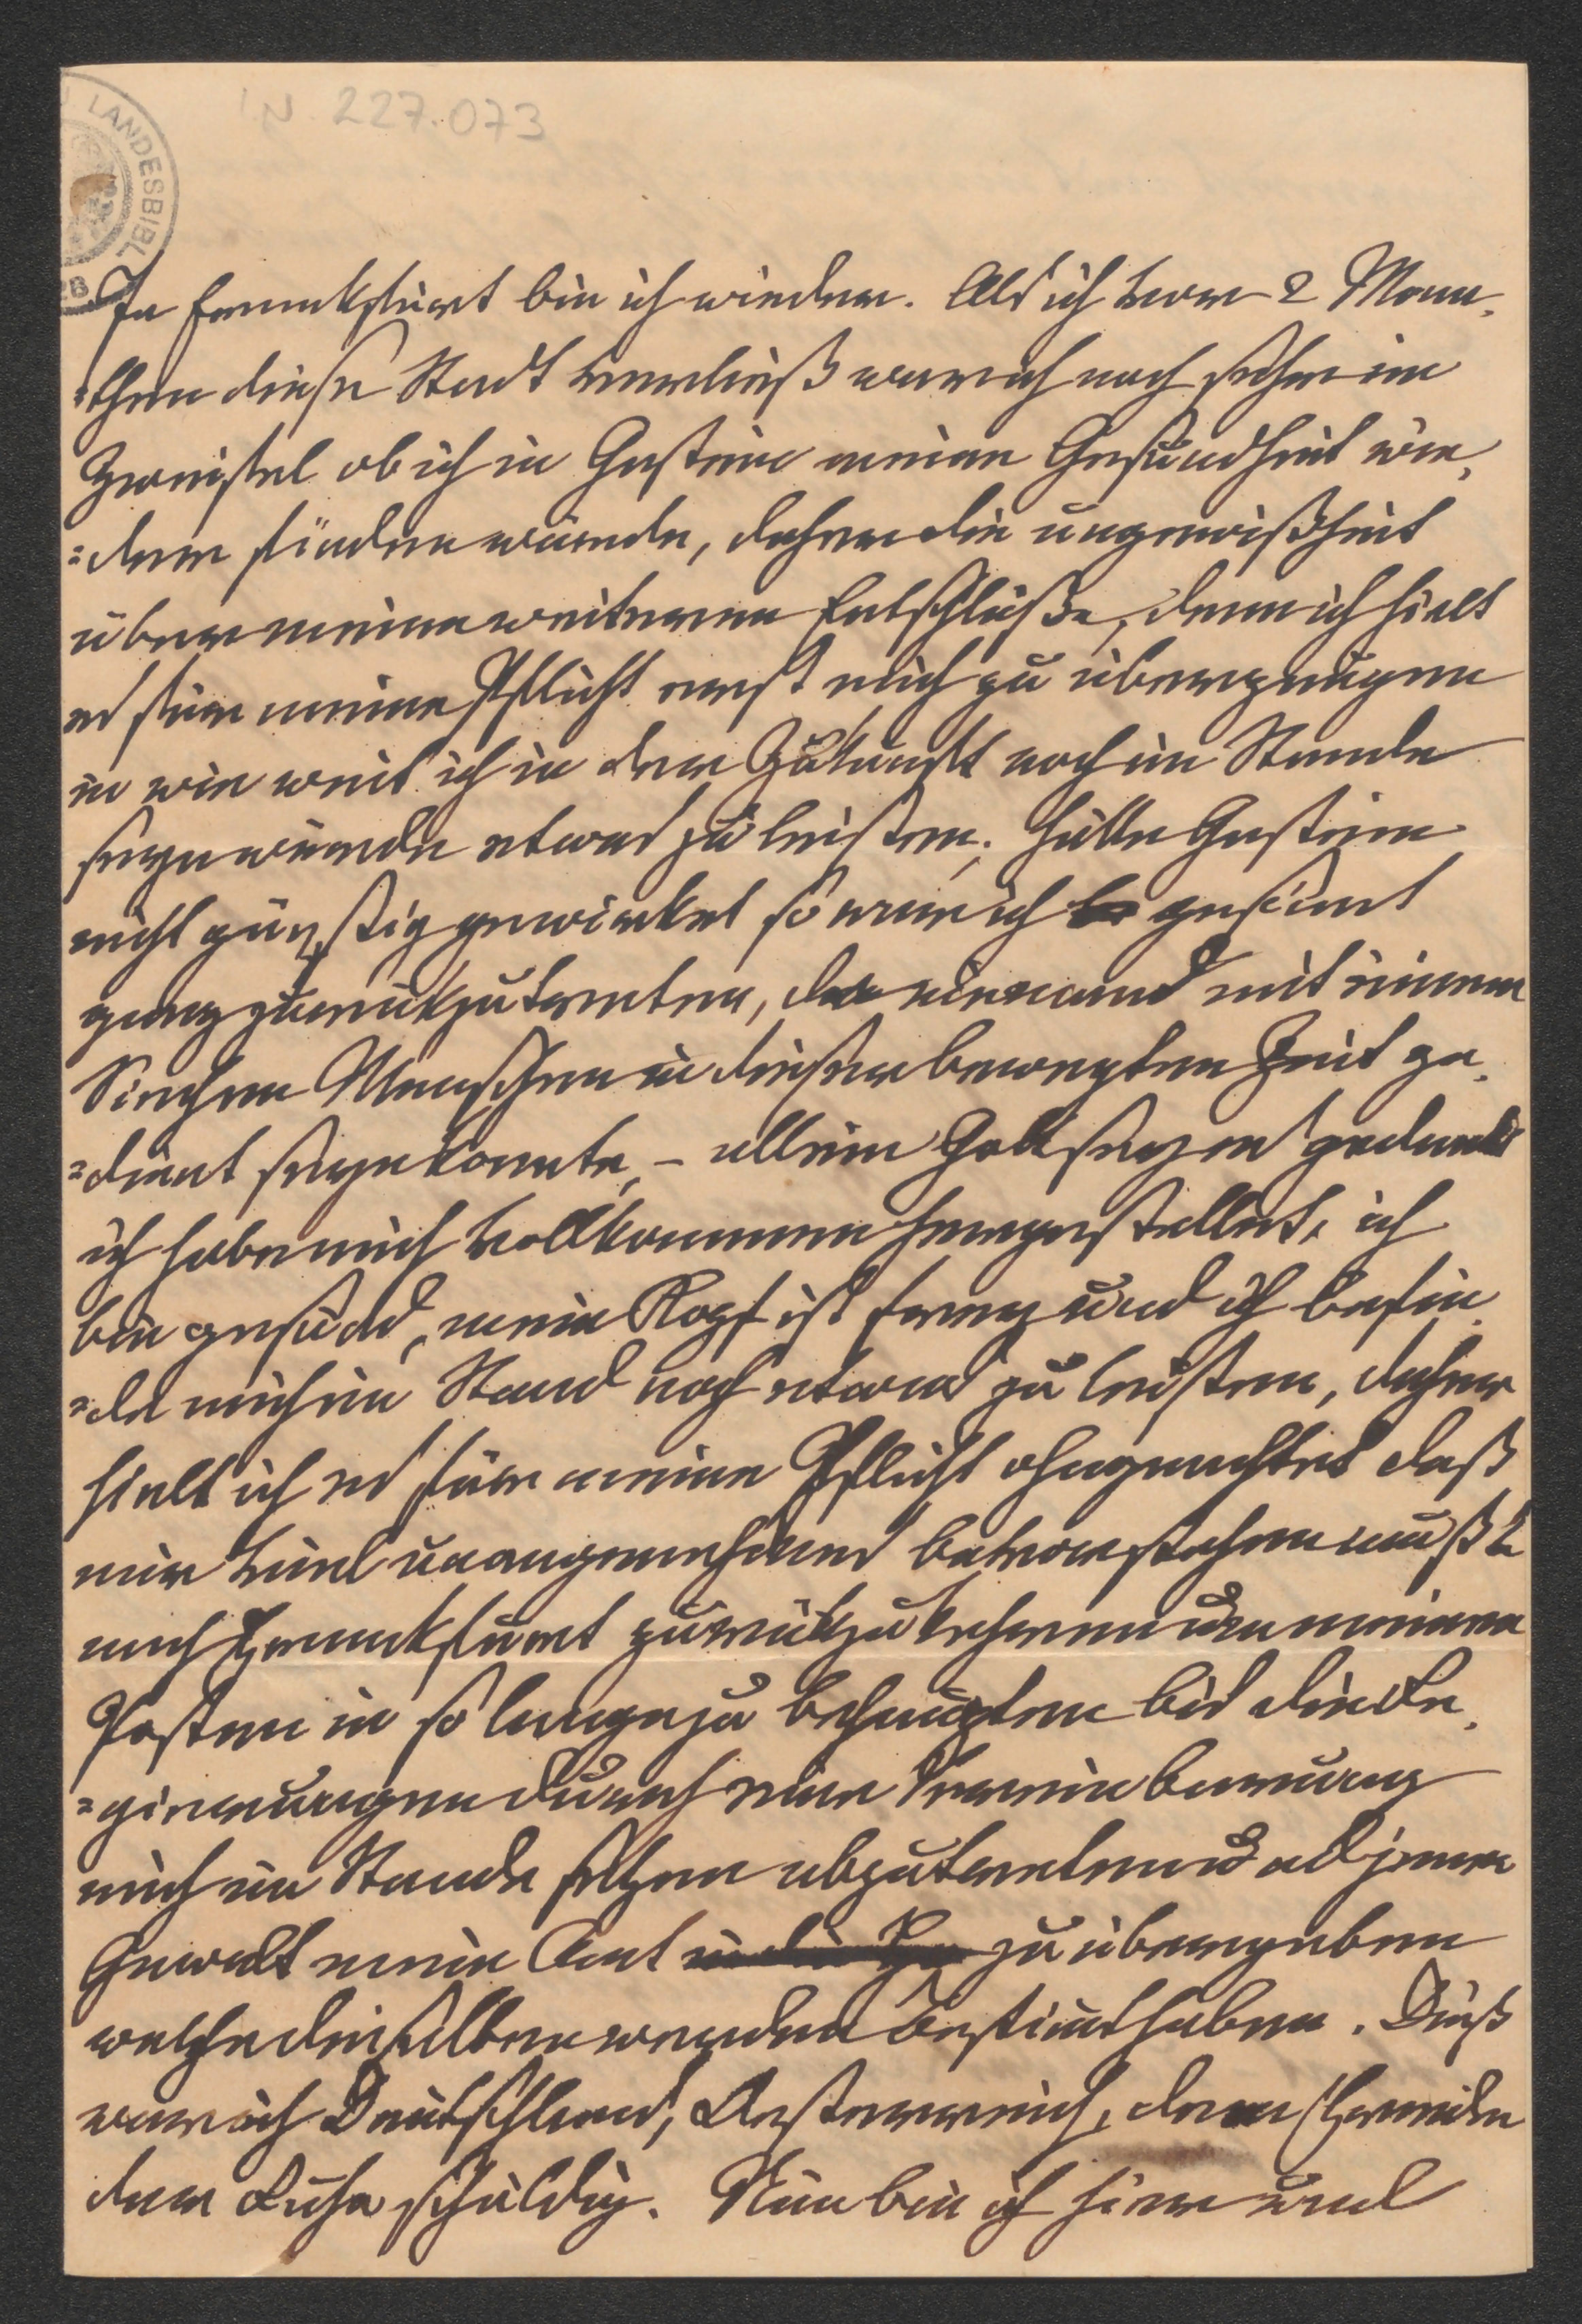 IN 227.073
LANDESBIBL
In Frankfurt bin ich wieder. Als ich vor 2 Mona¬
=then diese Stadt verließ war ich noch sehr im
Zweifel ob ich in Gastein meine Gesundheit wie¬
=der finden würde, daher die ungewißheit
über meine weiteren Entschlüße, denn ich hielt
es für meine Pflicht erst mich zu überzeugen
in wie weit ich in der Zukunft noch im Stande
seyn würde etwas zu leisten; hätte Gastein
nicht günstig gewirket so war ich gesinnt
ganz zurükzutretten, da niemand mit einem
Siechen Menschen in dieser bewegten Zeit ge¬
=dient seyn konnte, – allein Gott sey es gedankt
ich habe mich vollkommen hergestellet, ich
bin gesund, mein Kopf ist frey und ich befin¬
=de mich im Stand noch etwas zu leisten, daher
hielt ich es für meine Pflicht ohngeachtet daß
mir viel unangenehmes bevorstehen mußte
nach Frankfurt zurükzukehren und meinen
Posten in so lange zu behaupten bis die Re¬
=gierungen durch eine Vereinbarung
mich im Stande setzen abzutreten und jener
Gewalt mein Amt zu übergeben
welche dieselben werden bestimt haben. Dieß
war ich Deutschland, Oesterreich, dem Frieden
der Ruhe schuldig. Nun bin ich hier und